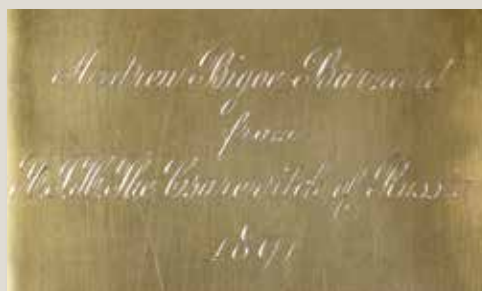 Andrew Bigoe Barnard
from
H.I.H. The Czarovitch of Russia
1891